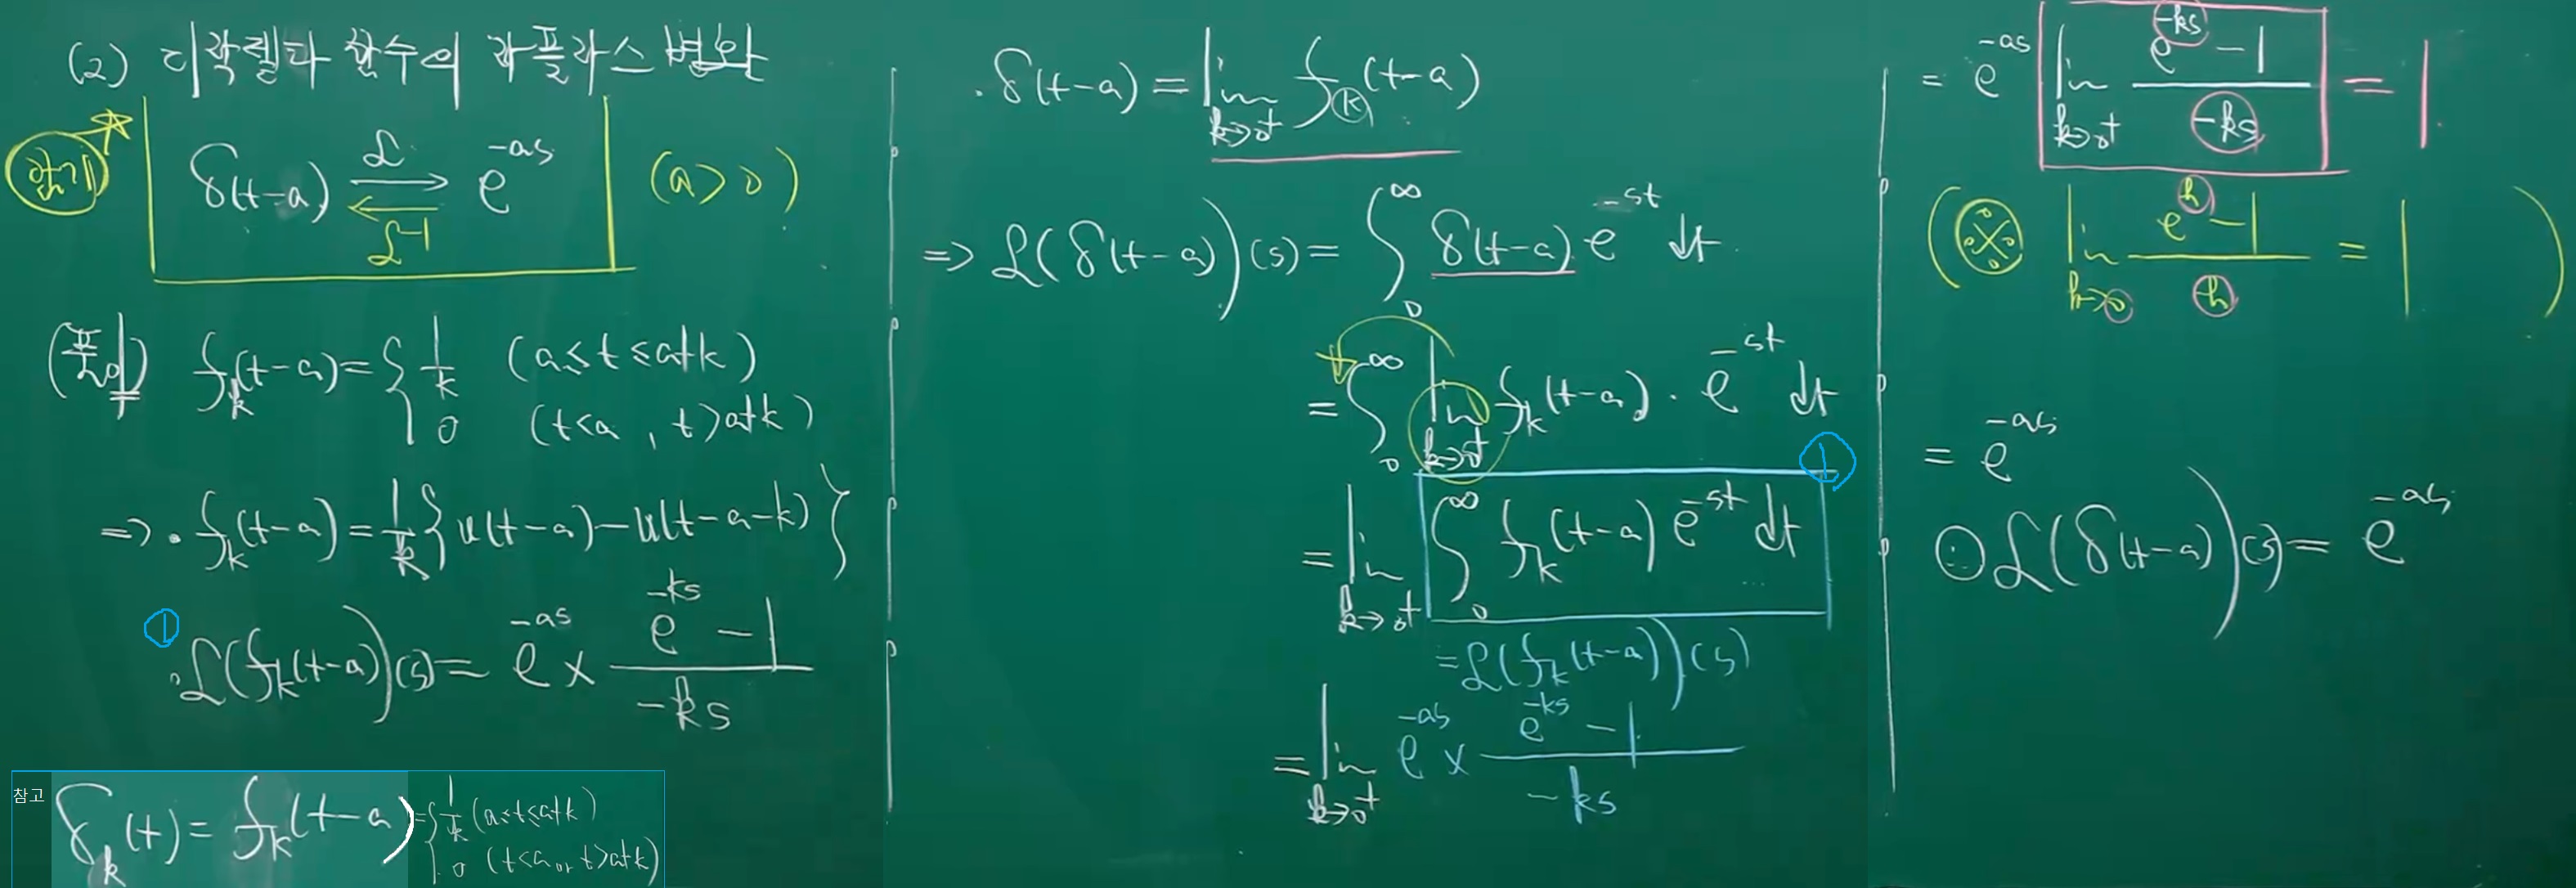 (2) 디락델타 함수의 라플라스 변환
암기 ☆ δ(t-a) ⇄ e^{-as} (a>0)
ℒ
ℒ^{-1}
(풀이) f_k(t-a) = { 1/k (a≤t≤a+k)
0 (t<a, t>a+k)
=> · f_k(t-a) = 1/k { u(t-a) - u(t-a-k) }
① · ℒ(f_k(t-a))(s) = e^{-as} × (e^{-ks} - 1)/(-ks)
참고 δ_k(t) = f_k(t-a) = { 1/k (a≤t≤a+k)
0 (t<a or t>a+k)
· δ(t-a) = lim_{k→0^+} f_k(t-a)
=> ℒ(δ(t-a))(s) = ∫_0^∞ δ(t-a) e^{-st} dt
= ∫_0^∞ lim_{k→0^+} f_k(t-a) · e^{-st} dt
= lim_{k→0^+} ∫_0^∞ f_k(t-a) e^{-st} dt ①
= ℒ(f_k(t-a))(s)
= lim_{k→0^+} e^{-as} × (e^{-ks} - 1)/(-ks)
= e^{-as} lim_{k→0^+} (e^{-ks} - 1)/(-ks) = 1
(※ lim_{h→0} (e^h - 1)/h = 1)
= e^{-as}
⊙ ℒ(δ(t-a))(s) = e^{-as}